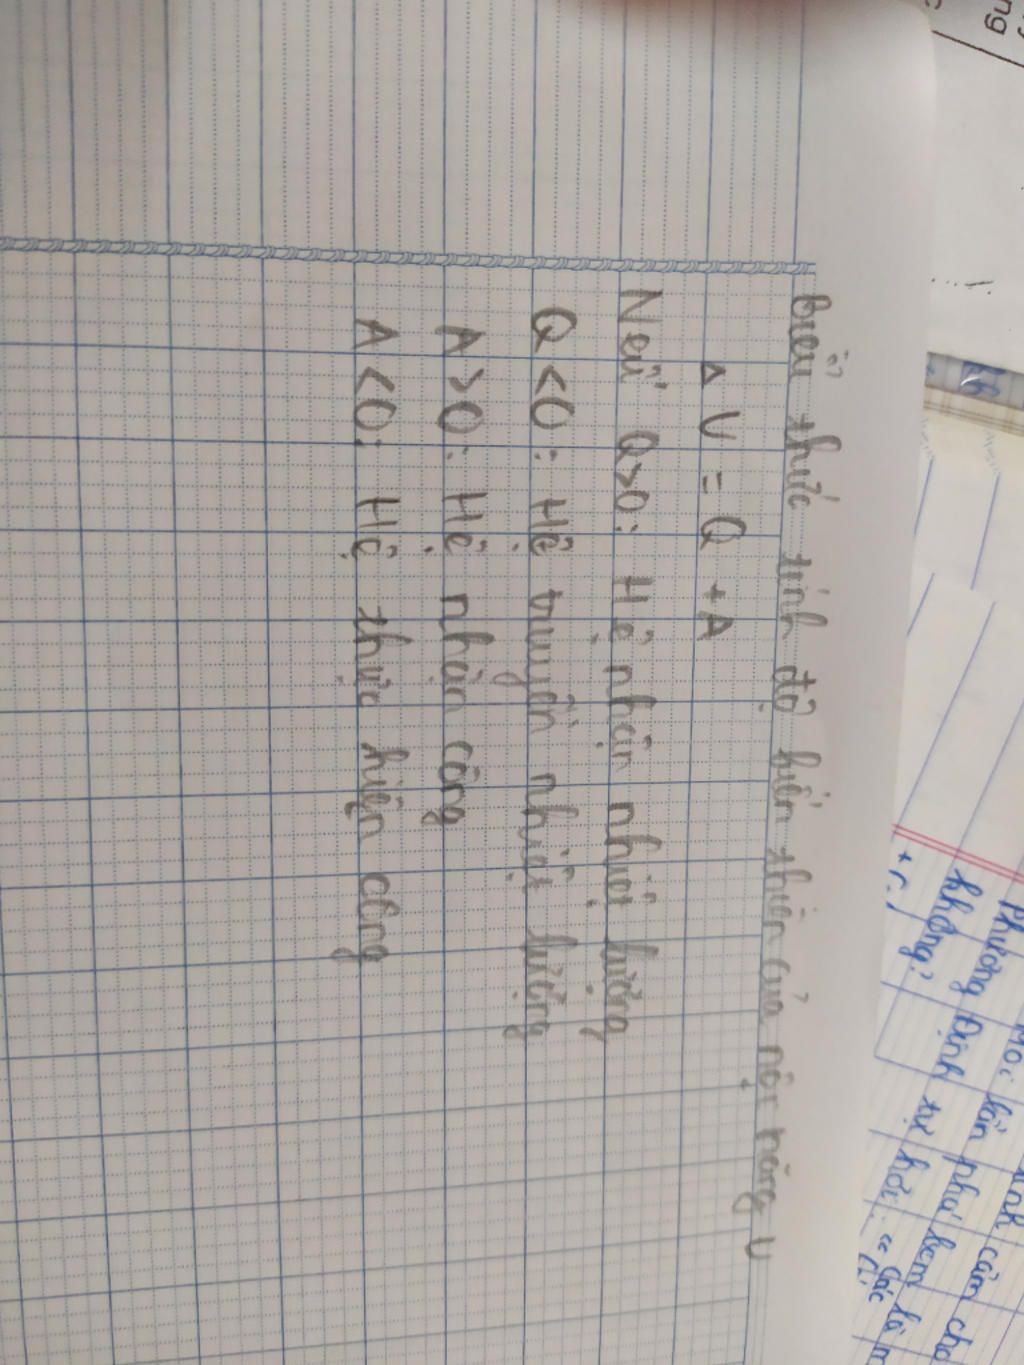 Biểu thức tính độ biến thiên của nội năng U
Δ U = Q + A
Nếu Q>0: Hệ nhận nhiệt lượng
Q<0: Hệ truyền nhiệt lượng
A>0: Hệ nhận công
A<0: Hệ thực hiện công
ng
cảm cho
lần phải kem là
không? Định tự hỏi: "các